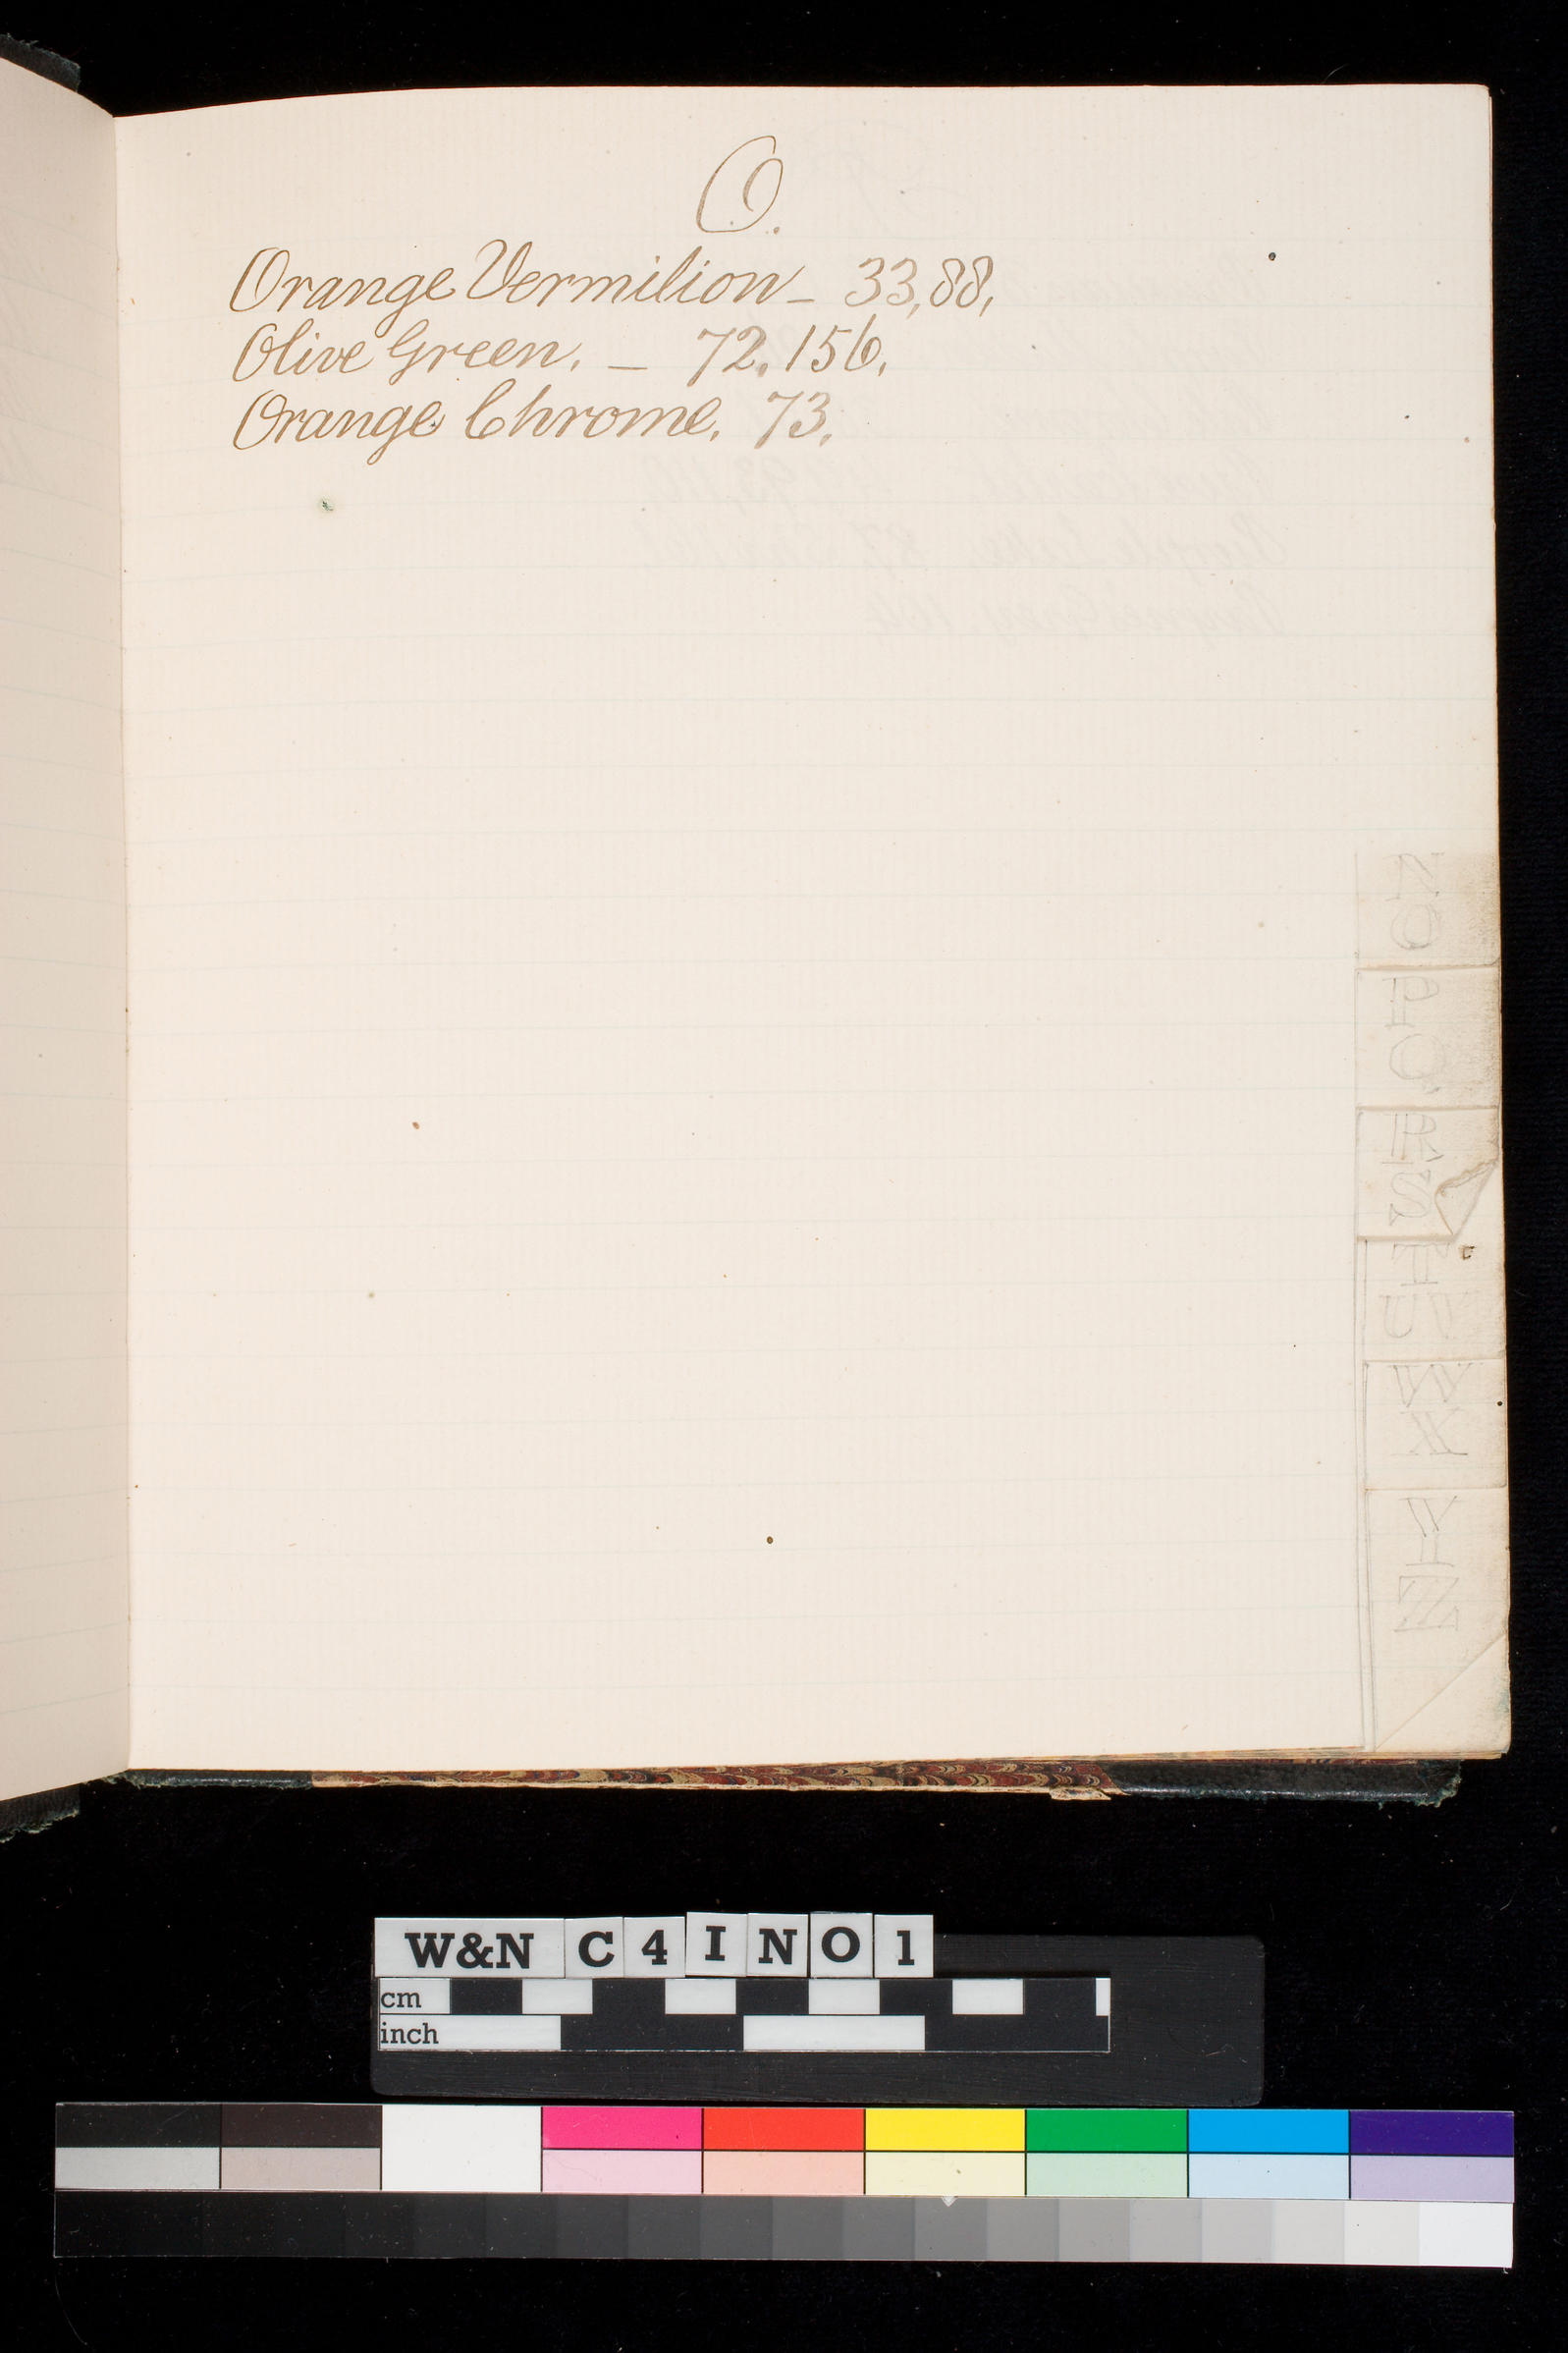 O.
Orange Vermilion – 33, 88,
Olive Green. – 72. 156.
Orange Chrome. 73.
W&N C 4 I N O 1
cm
inch